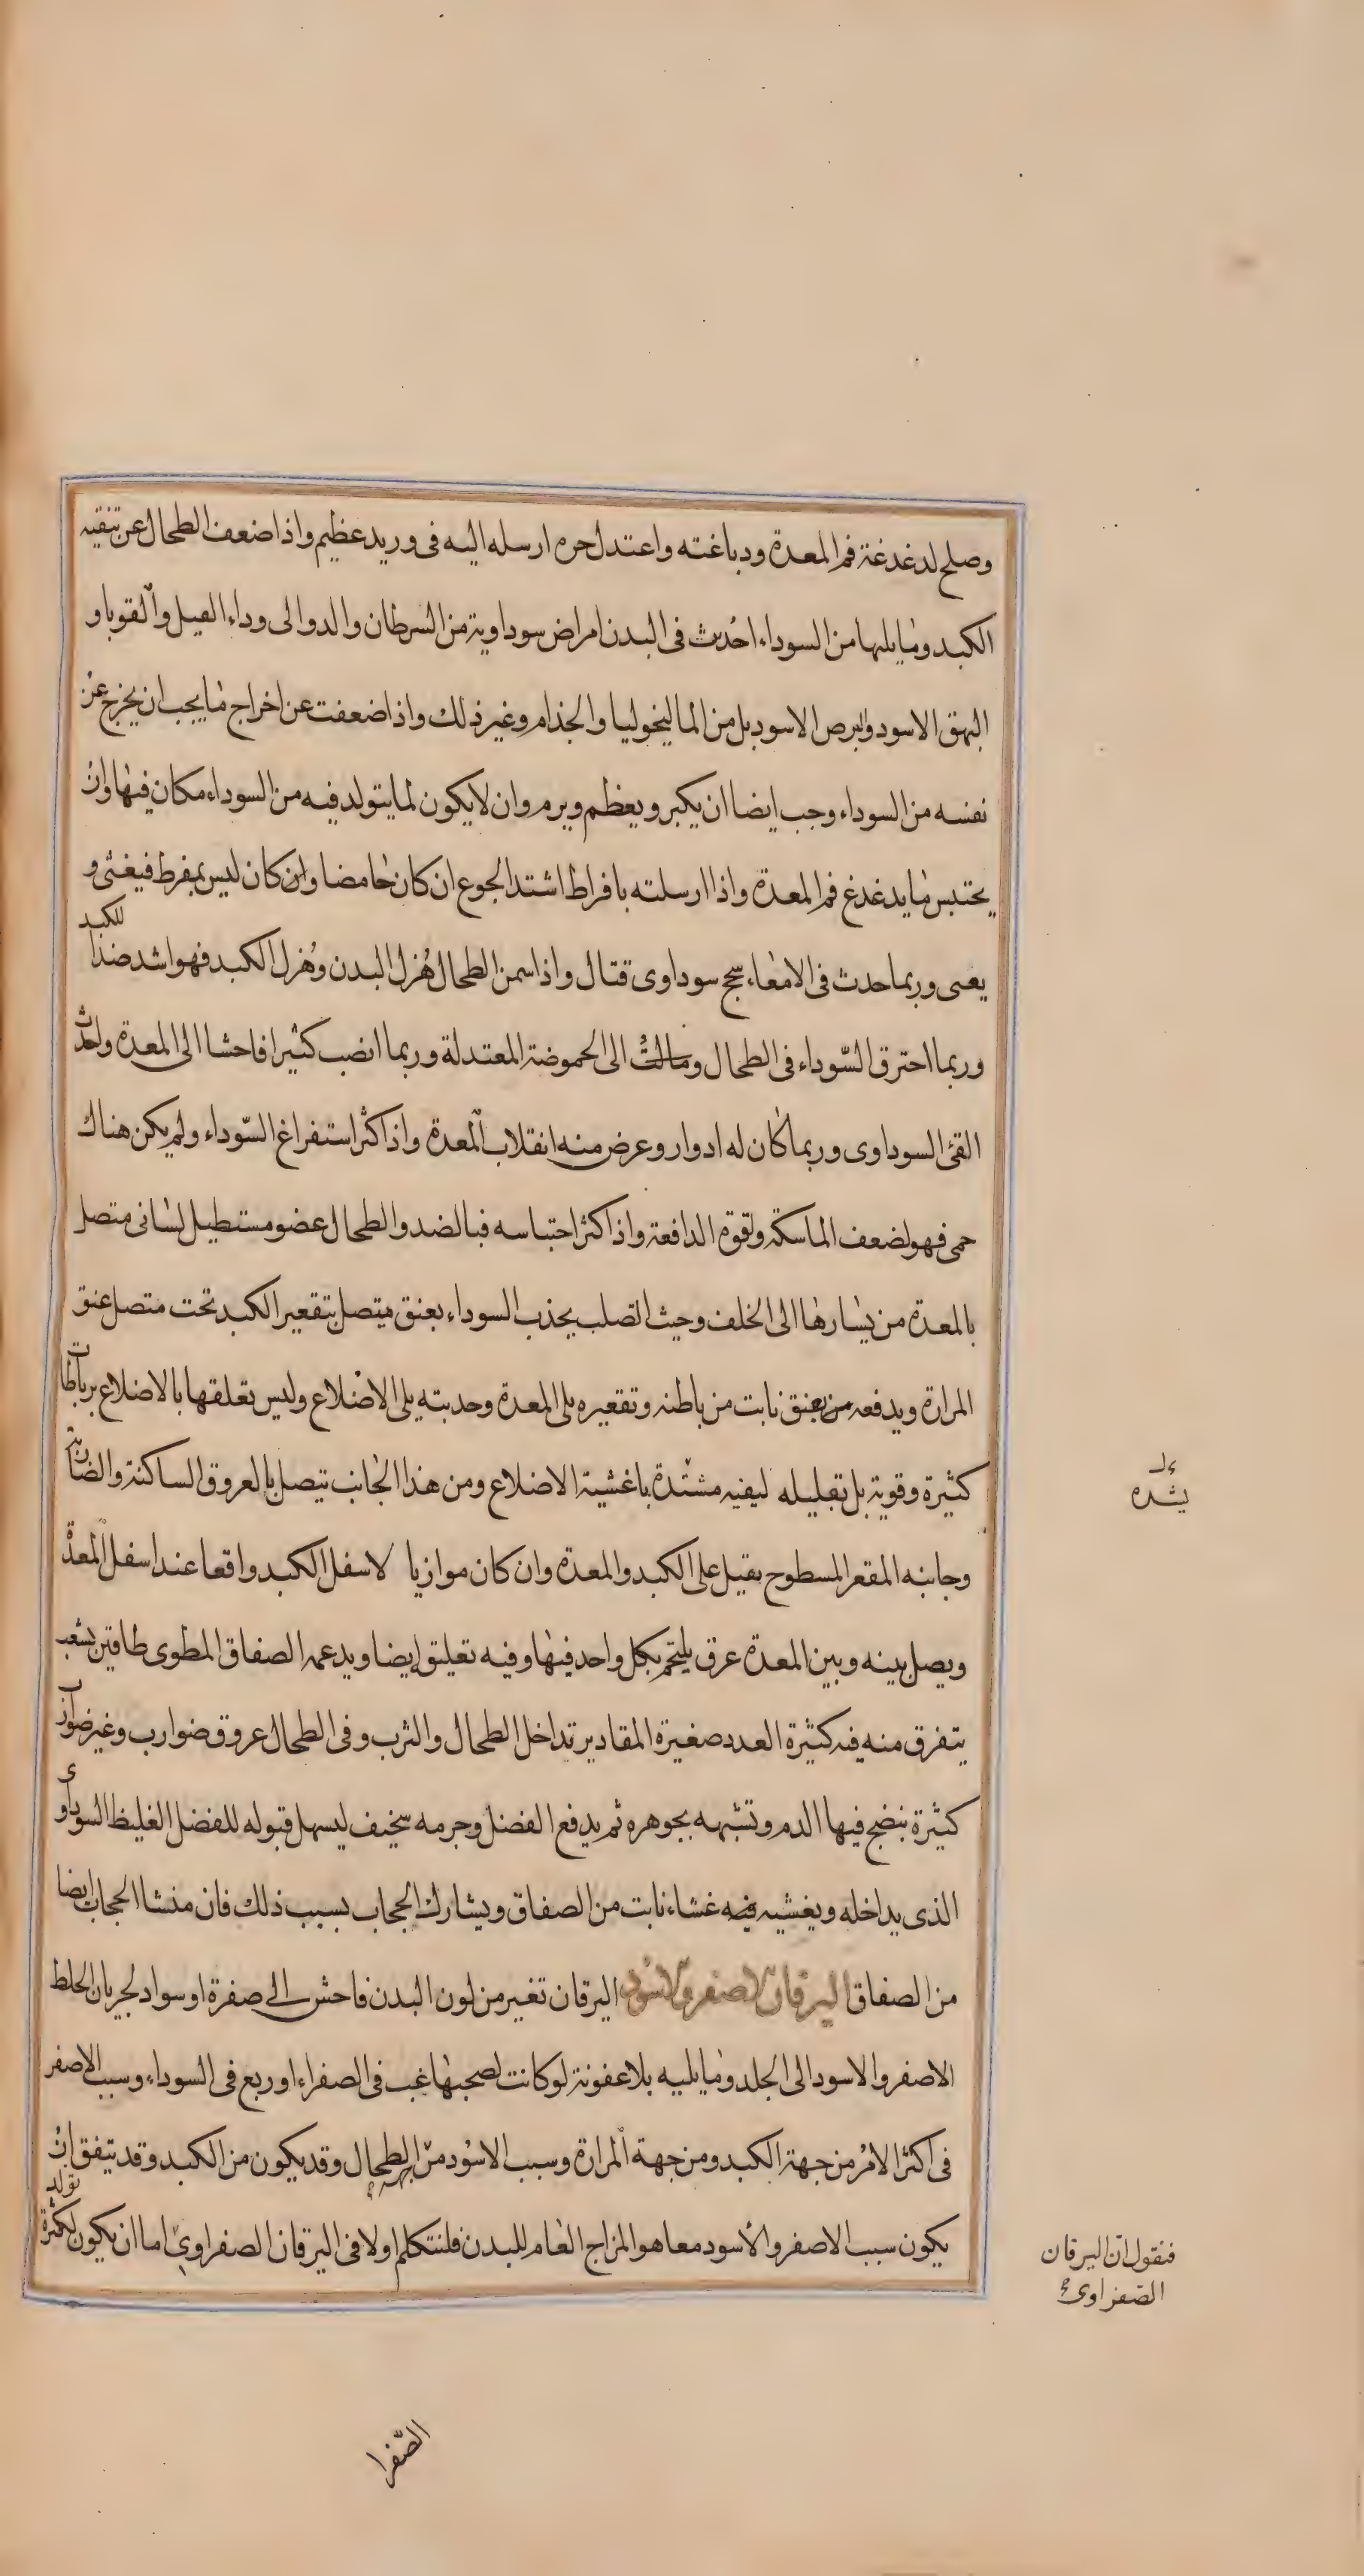 وصلح لدغدغة فم المعدة ودباغته واعتدل حره ارسله اليه فى وريد عظيم واذا ضعف الطحال عن تنقيه
الكبد وما يليها من السوداء احدث فى البدن امراض سوداوية من السرطان والدوالى وداء الفيل والقوبا و
البهق الاسود والبرص الاسود بل من الماليخوليا والجذام وغير ذلك واذا ضعفت عن اخراج ما يجب ان يخرج عن
نفسه من السوداء وجب ايضا ان يكبر ويعظم ويرم وان لا يكون لما يتولد فيه من السوداء مكان فيها وان
يحتبس ما يدغدغ فم المعدة واذا ارسلته بافراط اشتد الجوع ان كان حامضا وان كان ليس بمفرط فيغثى و
يعنى وربما حدث فى الامعاء سحج سوداوى قتال واذا سمن الطحال هزل البدن وهزل الكبد فهو اشد ضدا للكبد
وربما احترق السوداء فى الطحال ومالت الى الحموضة المعتدلة وربما انصب كثيرا فاحشا الى المعدة واحدث
القئ السوداوى وربما كان له ادوار وعرض منه انقلاب المعدة واذا كثر استفراغ السوداء ولم يكن هناك
حمى فهو لضعف الماسكة ولقوة الدافعة واذا كثر احتباسه فبالضد والطحال عضو مستطيل لسانى متصل
بالمعدة من يسارها الى الخلف وحيث الصلب يجذب السوداء بعنق متصل بتقعير الكبد تحت متصل عنق
المرارة ويدفعه من بعنق نابت من باطنه وتقعيره يلى المعدة وحدبته يلى الاضلاع وليس تعلقها بالاضلاع برباطات
كثيرة وقوية بل بقليله ليفيه مشتدة باغشية الاضلاع ومن هذا الجانب يتصل بالعروق الساكنة والضاربة
وجانبه المقعر المسطوح يقبل على الكبد والمعدة وان كان موازيا لاسفل الكبد واقعا عند اسفل المعدة
ويصل بينه وبين المعدة عرق يلتحم بكل واحد فيها وفيه تعليق ايضا ويدعمه الصفاق المطوى طاقتين بشعب
يتفرق منه فيه كثيرة العدد صغيرة المقادير تداخل الطحال والثرب وفى الطحال عروق ضوارب وغير ضوارب
كثيرة ينضج فيها الدم وتشبهه بجوهره ثم يدفع الفضل وجرمه سخيف ليسهل قبوله للفضل الغليظ السوداوى
الذى يداخله ويغشيه فيه غشاء نابت من الصفاق ويشارك الحجاب بسبب ذلك فان منشا الحجاب ايضا
من الصفاق اليرقان الاصفر والاسود اليرقان تغير من لون البدن فاحش الى صفرة او سواد لجريان الخلط
الاصفر والاسود الى الجلد وما يليه بلا عفونة لو كانت لصحبها غب فى الصفراء او ربع فى السوداء وسبب الاصفر
فى اكثر الامر من جهة الكبد ومن جهة المرارة وسبب الاسود من جهة الطحال وقد يكون من الكبد وقد يتفق ان
يكون سبب الاصفر والاسود معا هو المزاج العام للبدن فلنتكلم اولا فى اليرقان الصفراوى اما ان يكون لكثرة تولد
بشده
فنقول ان اليرقان
الصفراوى
الصفرا